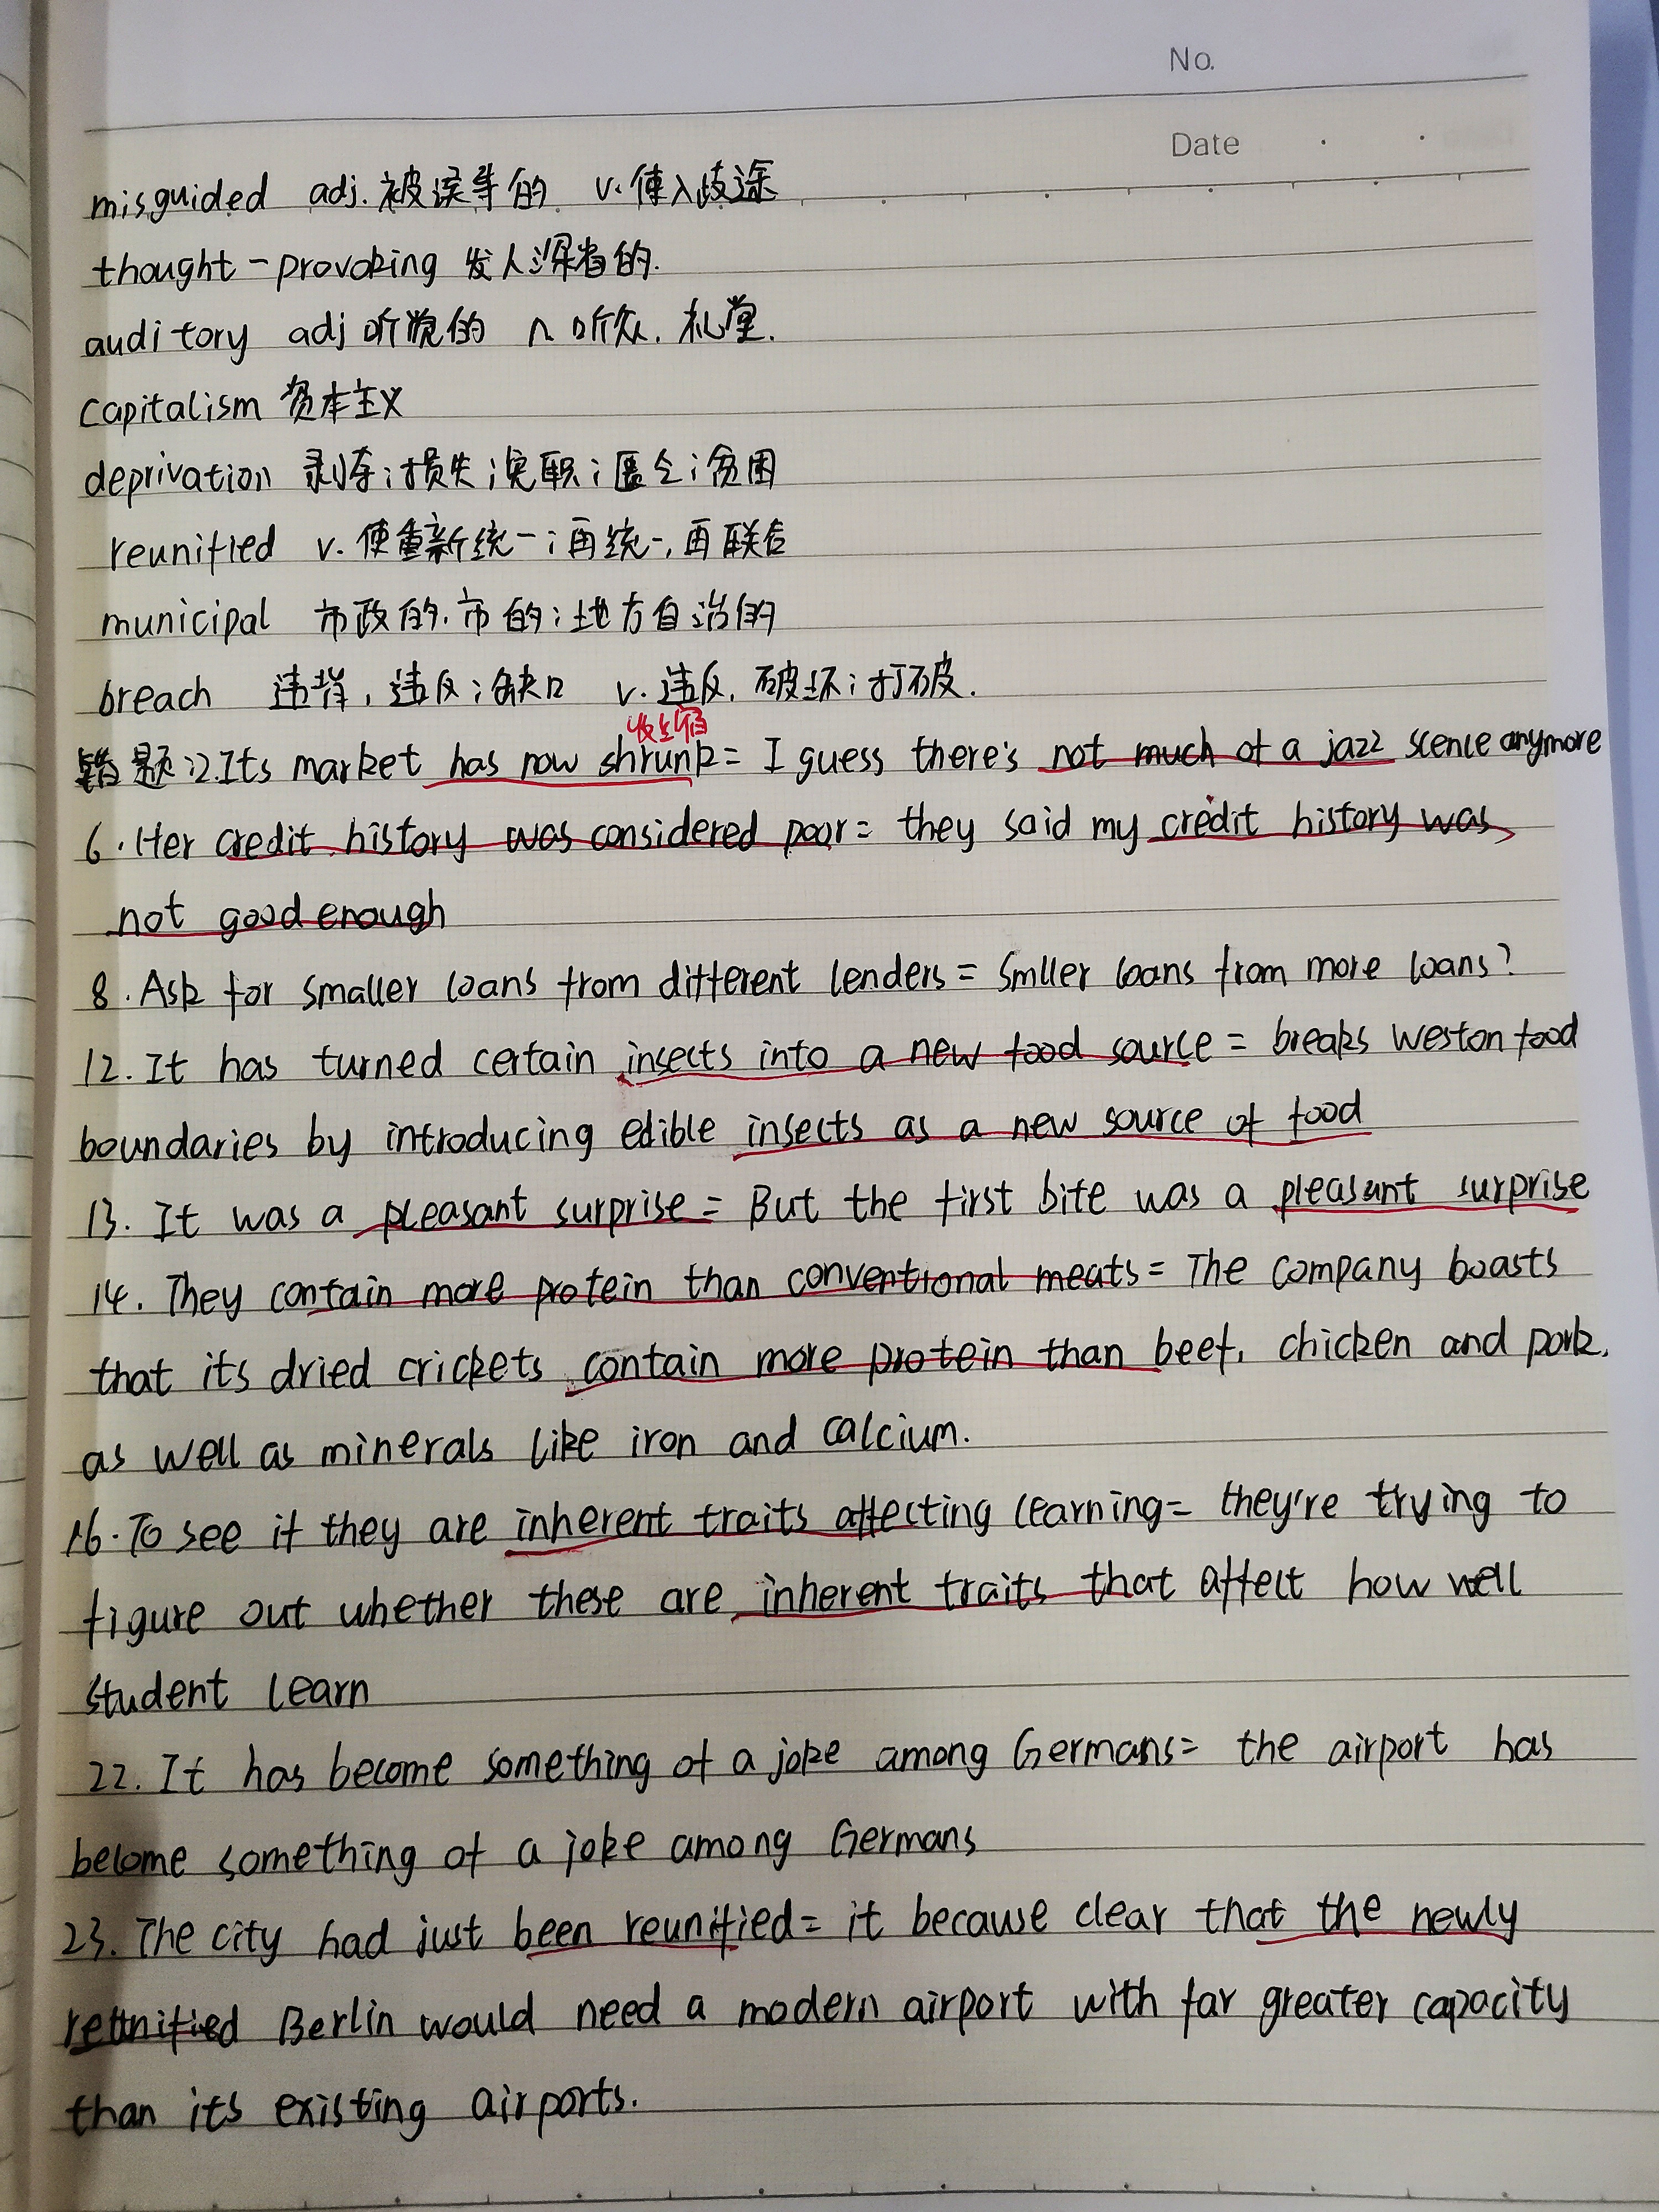 No.
Date
misguided adj.被误导的 v.使入歧途
thought-provoking 发人深省的.
auditory adj 听觉的 n 听众.礼堂.
Capitalism 资本主义
deprivation 剥夺;损失;免职;匮乏;贫困
reunified v.使重新统一;再统一,再联合
municipal 市政的.市的;地方自治的
breach 违背,违反;缺口 v.违反.破坏;打破.
收缩
错题:2.Its market has now shrunk= I guess there's not much of a jazz scence anymore
6.Her credit history was considered poor= they said my credit history was
not good enough
8.Ask for smaller loans from different lenders= smller loans from more loans?
12.It has turned certain insects into a new food source= breaks weston food
boundaries by introducing edible insects as a new source of food
13. It was a pleasant surprise= But the first bite was a pleasant surprise
14. They contain more protein than conventional meats= The company boasts
that its dried crickets contain more protein than beef, chicken and pork,
as well as minerals like iron and calcium.
16.To see if they are inherent traits affecting learning= they're trying to
figure out whether these are inherent traits that affect how well
student learn
22. It has become something of a joke among Germans= the airport has
become something of a joke among Germans
23. The city had just been reunified= it because clear that the newly
reunified Berlin would need a modern airport with far greater capacity
than its existing airports.